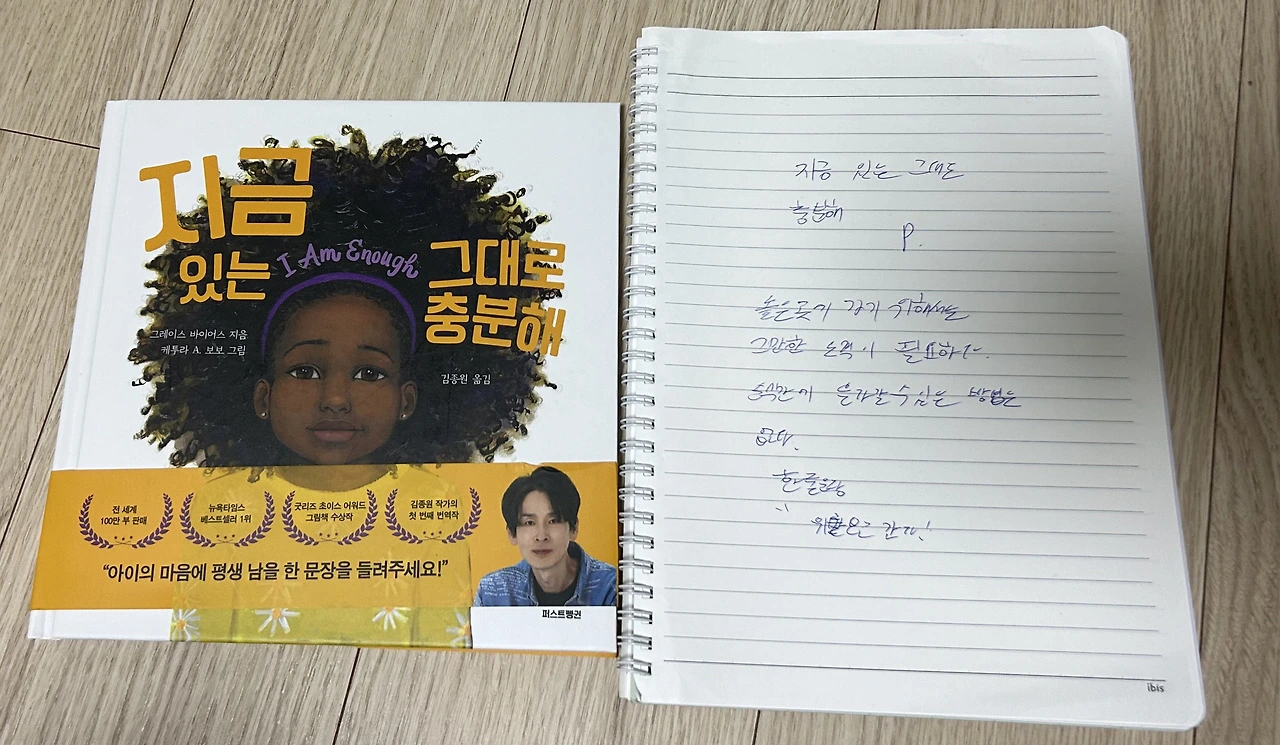 지금
있는
I Am Enough
그대로
충분해
그레이스 바이어스 지음
케투라 A. 보보 그림
김종원 옮김
전 세계
100만 부 판매
뉴욕타임스
베스트셀러 1위
굿리즈 초이스 어워드
그림책 수상작
김종원 작가의
첫 번째 번역작
“아이의 마음에 평생 남을 한 문장을 들려주세요!”
퍼스트펭귄
지금 있는 그대로
충분해
P.
높은 곳에 가기 위해서는
그만한 노력이 필요하다.
순식간에 올라갈 수 있는 방법은
없다.
한줄요약
위로 간다!
ibis